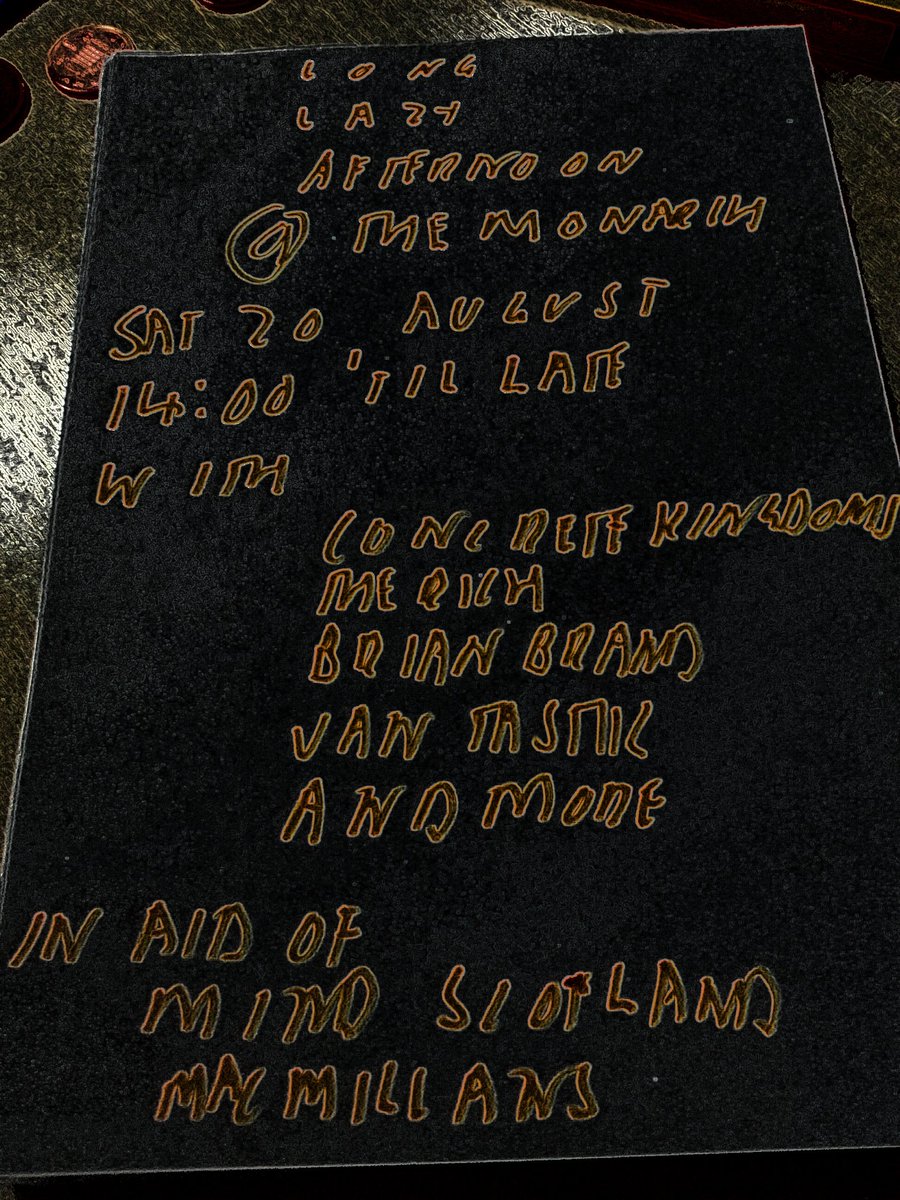 LONG
LAZY
AFTERNOON
@ THE MONARCH
SAT 20 AUGUST
14:00 'TIL LATE
WITH
CONCRETE KINGDOMS
THE RICH
BRIAN BRAND
VAN TASTIC
AND MORE
IN AID OF
MIND SCOTLAND
MACMILLANS